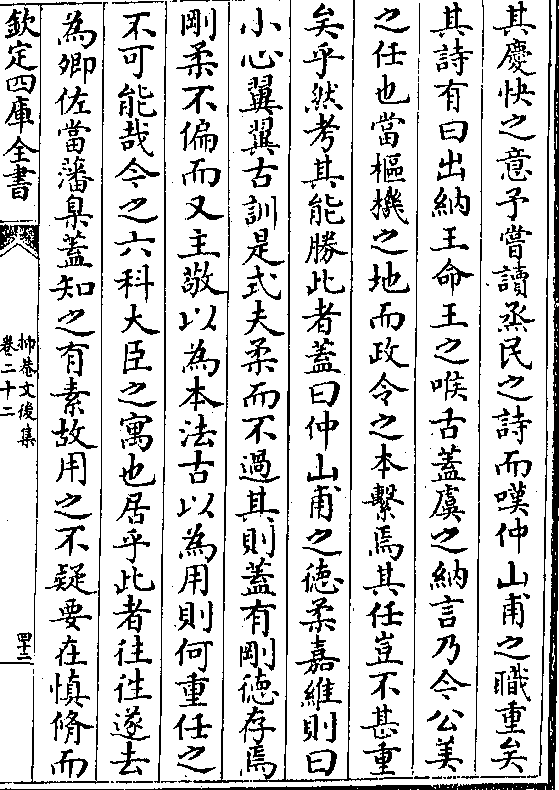 其慶快之意予嘗讀烝民之詩而嘆仲山甫之職重矣
其詩有曰出納王命王之喉舌蓋虞之納言乃今公美
之任也當樞機之地而政令之本繫焉其任豈不甚重
矣乎然考其能勝此者蓋曰仲山甫之德柔嘉維則曰
小心翼翼古訓是式夫柔而不過其則蓋有剛德存焉
剛柔不偏而又主敬以為本法古以為用則何重任之
不可能哉今之六科大臣之寓也居乎此者往往遂去
為卿佐當藩臬蓋知之有素故用之不疑要在慎脩而
欽定四庫全書
抑菴文後集
卷二十二
四十二